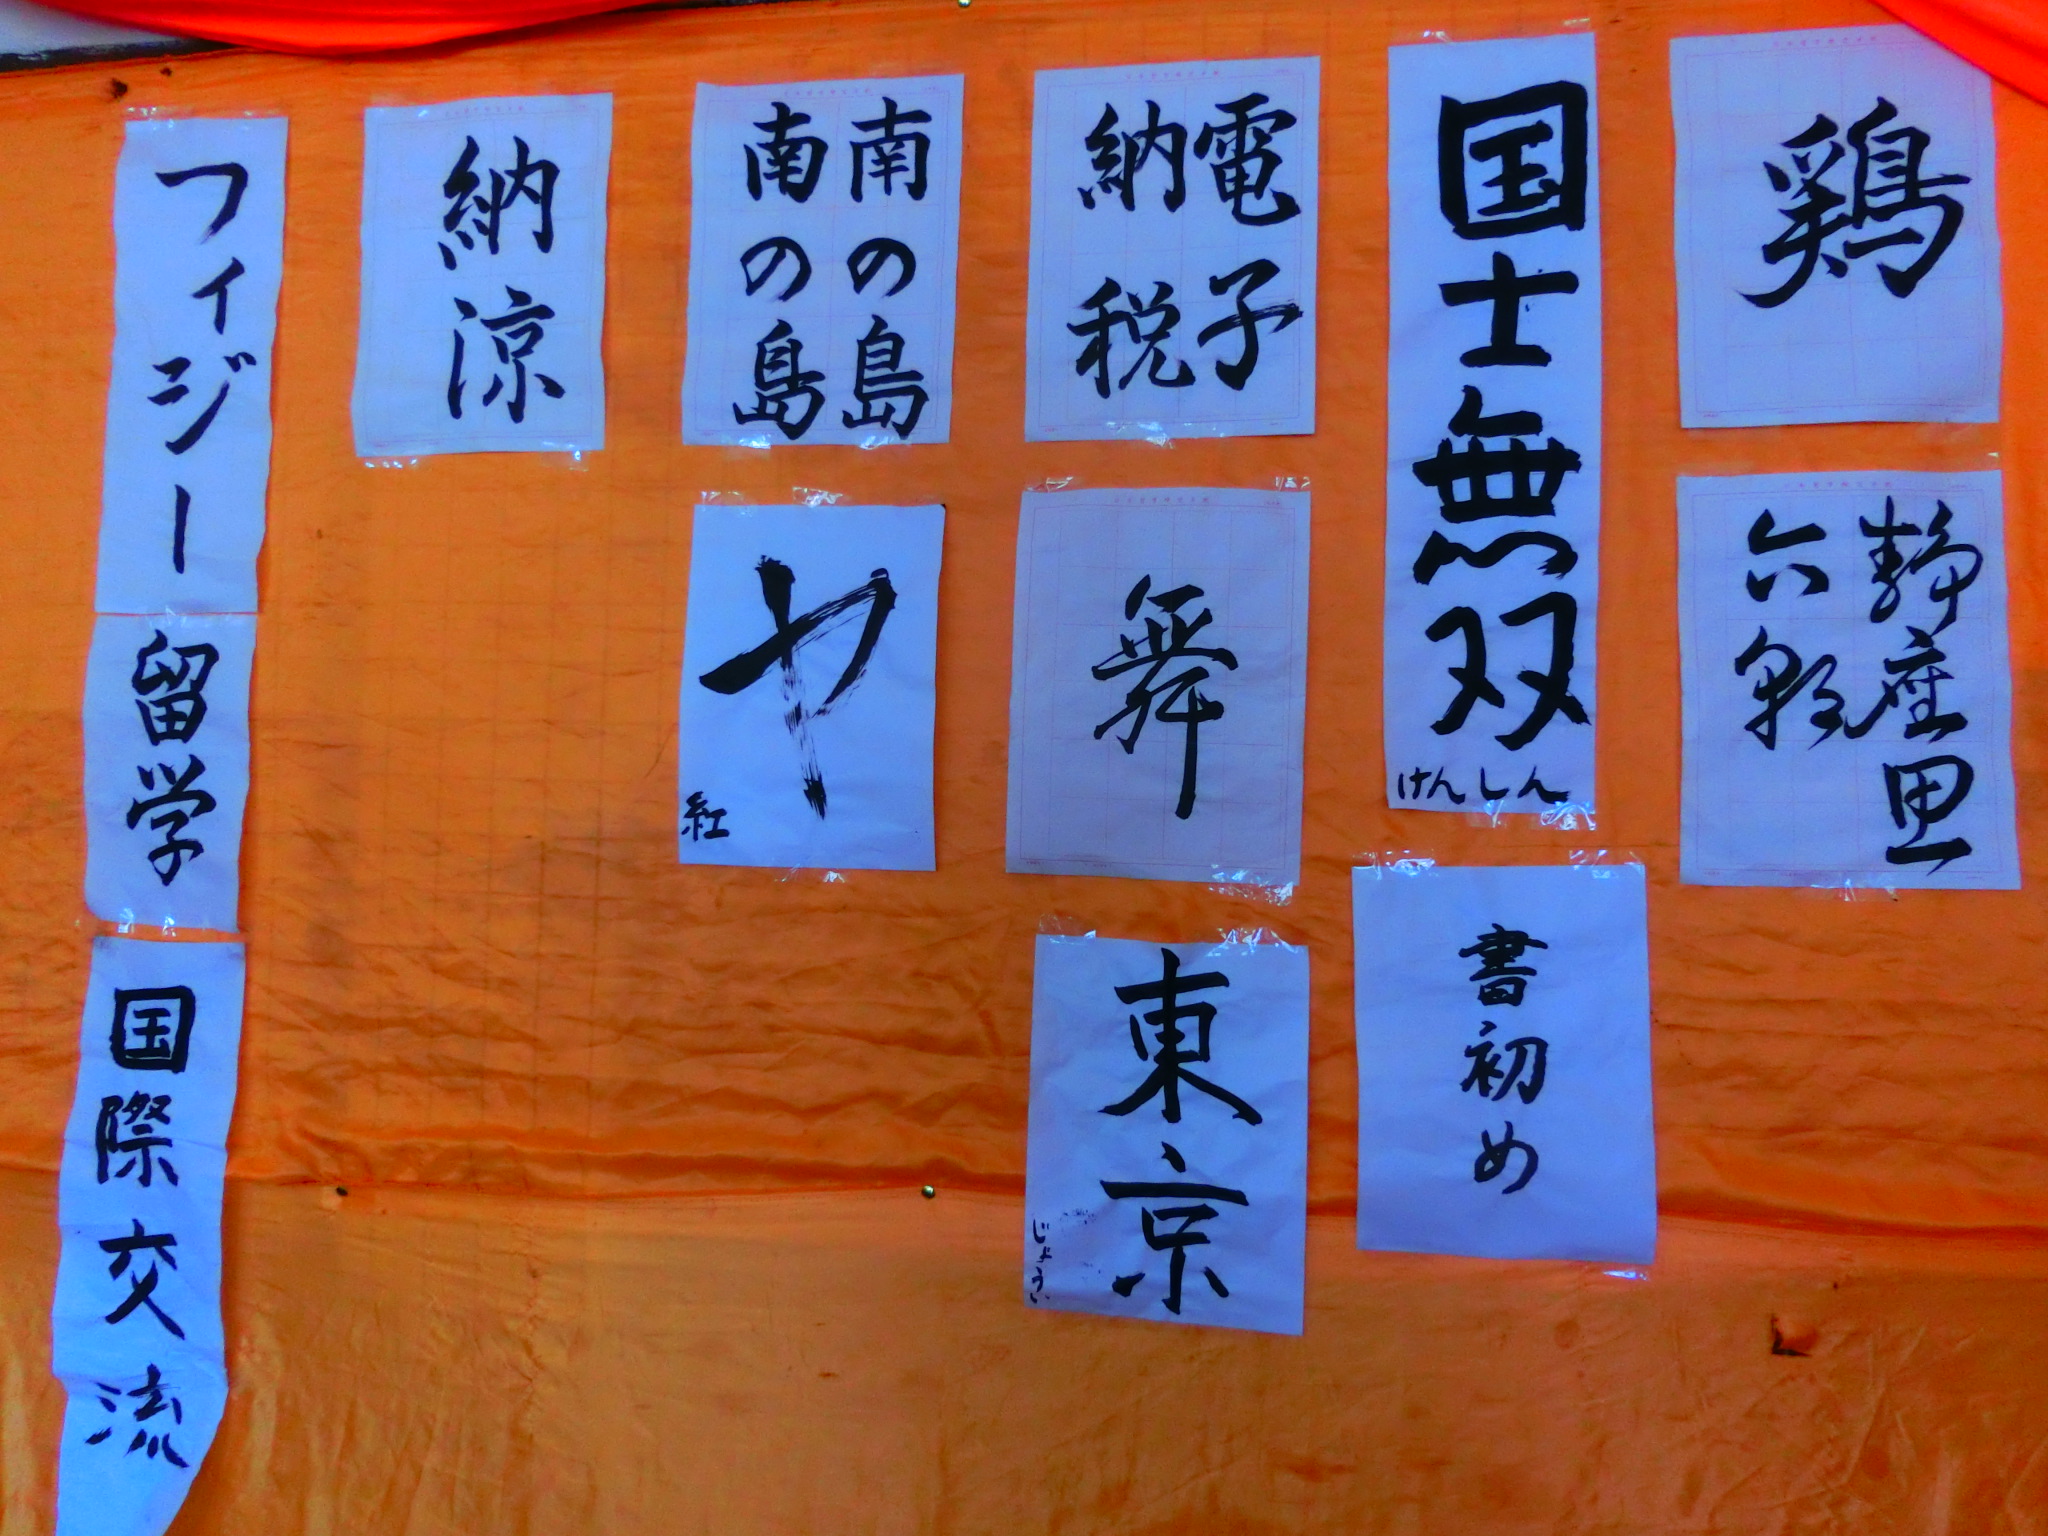 鶏
国士無双
けんしん
電子
納税
南の島
南の島
納涼
フィジー
留学
国際交流
舞
ヤ
紅
書初め
東京